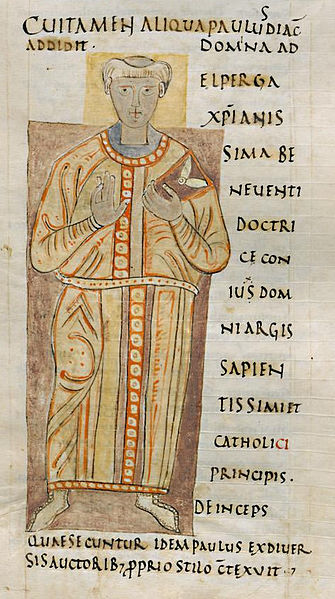 CUITAMEN ALIQUA PAULUS DIAC̄
ADDIDIT. DOMINA AD
ELPERGA
XP̄IANIS
SIMA BE
NEVENTI
DOCTRI
CE CON
IUS̄ DOM
NI ARGIS
SAPIEN
TISSIMI ET
CATHOLICI
PRINCIPIS.
DEINCEPS
QUAE SECUNTUR IDEM PAULUS EX DIVER
SIS AUCTORIB; PROPRIO STILO C̄TEXUIT